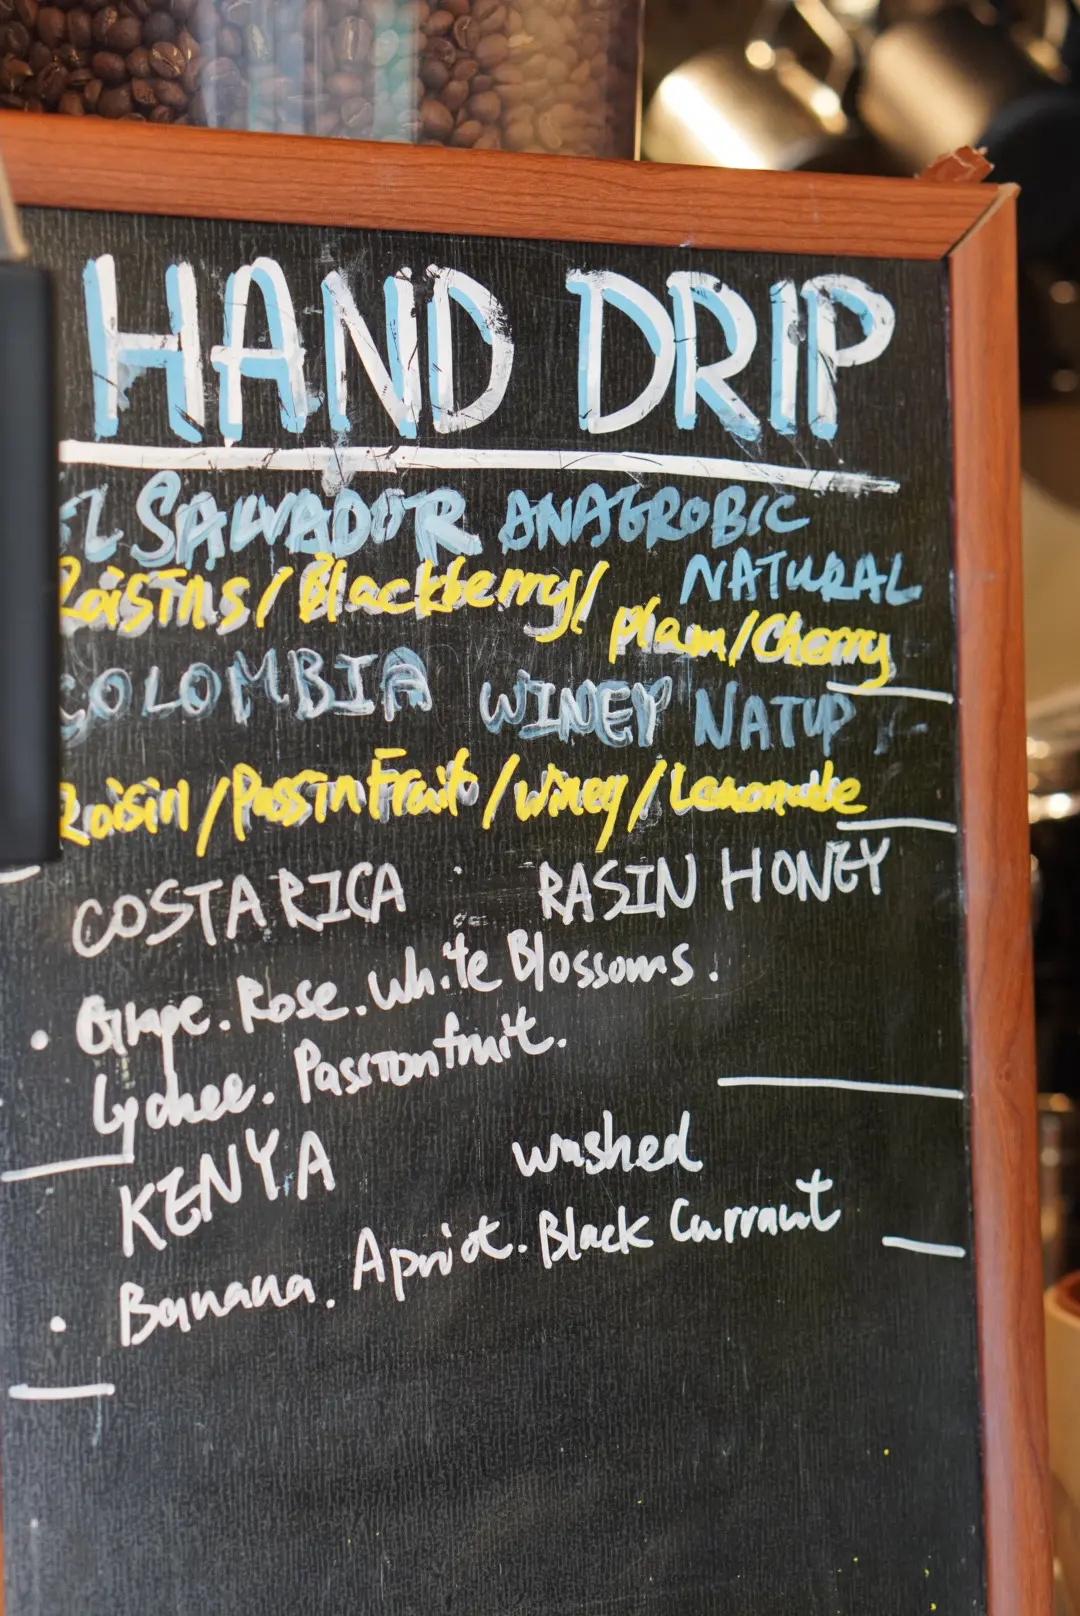 HAND DRIP
EL SALVADOR ANAGROBIC
NATURAL
Raisins/Blackberry/
plam/Cherry
COLOMBIA WINEY NATUP
Raisin/PassinFruit/winey/Lemonade
COSTA RICA RASIN HONEY
Grape.Rose.White Blossoms.
Lychee. Passionfruit.
KENYA washed
Banana. Apriot. Black Currant